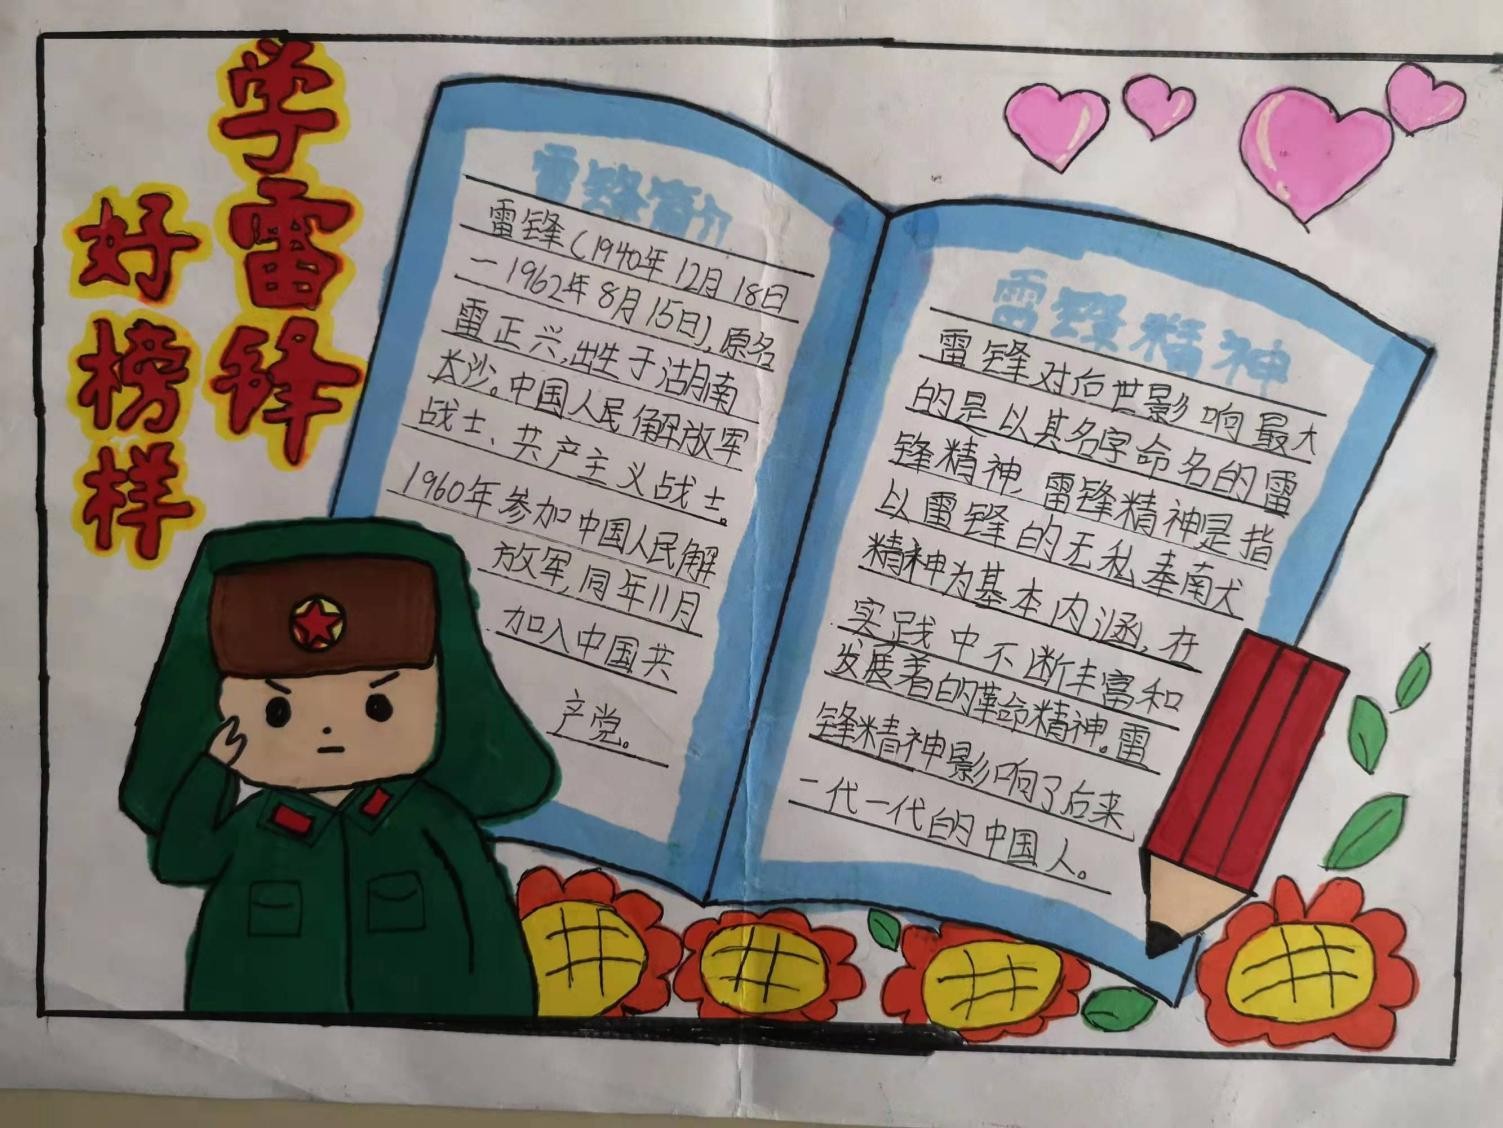 学雷锋
好榜样
雷锋简介
雷锋(1940年12月18日
一1962年8月15日),原名
雷正兴,出生于湖南
长沙。中国人民解放军
战士、共产主义战士。
1960年参加中国人民解
放军,同年11月
加入中国共
产党。
雷锋精神
雷锋对后世影响最大
的是以其名字命名的雷
锋精神,雷锋精神是指
以雷锋的无私奉南犬
精神为基本内涵,在
实践中不断丰富和
发展着的革命精神。雷
锋精神影响了后来
一代一代的中国人。